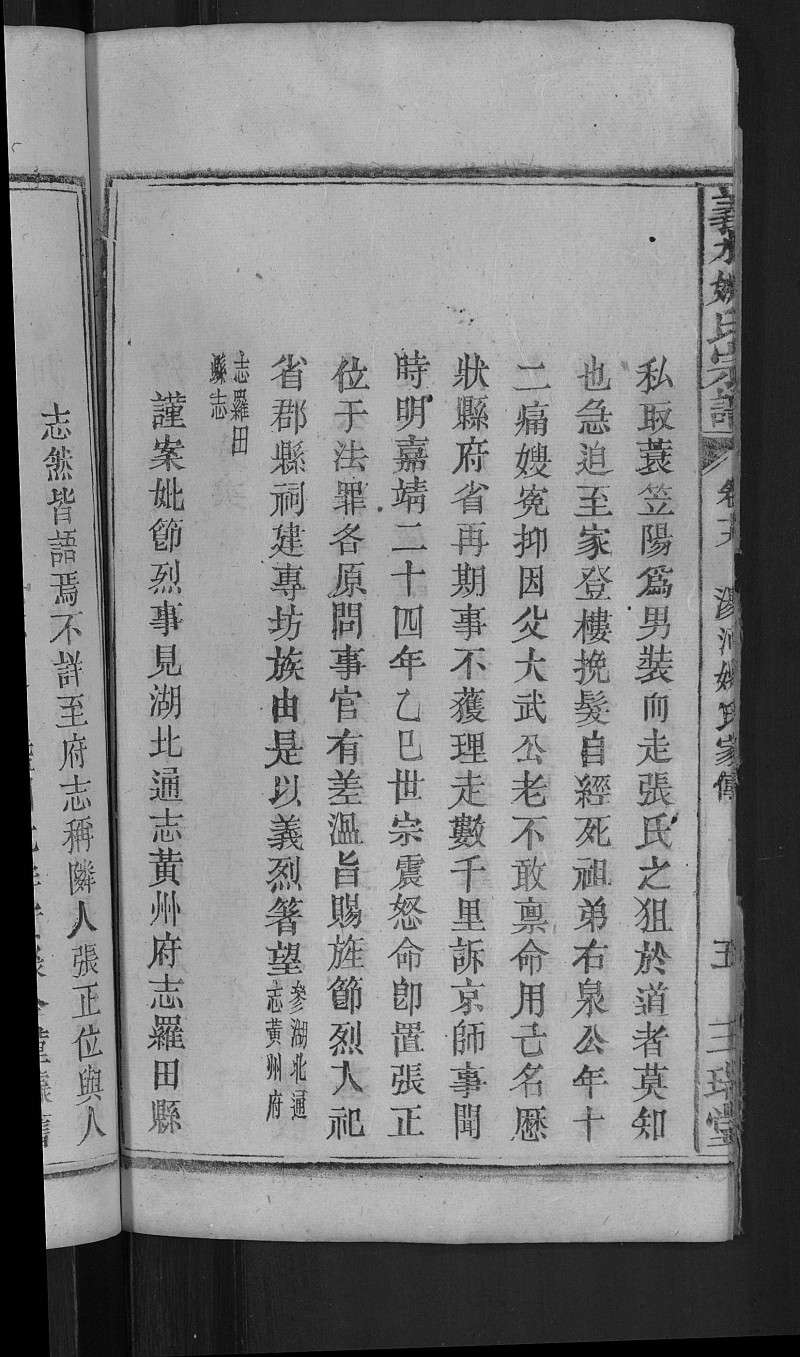 義水姚氏宗譜 卷 姚氏家傳 五 三瑞堂
私取蓑笠陽爲男裝而走張氏之狙於道者莫知
也急迫至家登樓挽髮自經死祖弟右泉公年十
二痛嫂冤抑因父大武公老不敢稟命用己名歷
狀縣府省再期事不獲理走數千里訴京師事聞
時明嘉靖二十四年乙巳世宗震怒命卽置張正
位于法罪各原問事官有差溫旨賜旌節烈入祀
省郡縣祠建專坊族由是以義烈箸望參湖北通
志黃州府
志羅田
縣志
謹案妣節烈事見湖北通志黃州府志羅田縣
志然皆語焉不詳至府志稱隣人張正位與人